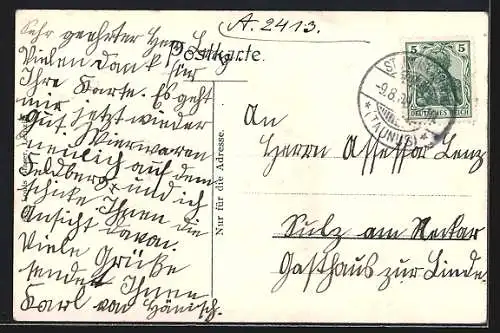 A. 2413.
Postkarte.
Sehr geehrter Herr Lenz.
Vielen Dank für
Ihre Karte. Es geht
mir jetzt wieder
gut. Wir waren
neulich auf dem
Feldberg und ich
schicke Ihnen die
Ansicht davon.
Viele Grüße
sendet Ihnen
Karl von Hänisch.
Nur für die Adresse.
5 5
DEUTSCHES REICH
-9.8.
*(TAUNUS)*
An
Herrn Assessor Lenz
Sulz am Neckar
Gasthaus zur Linde.